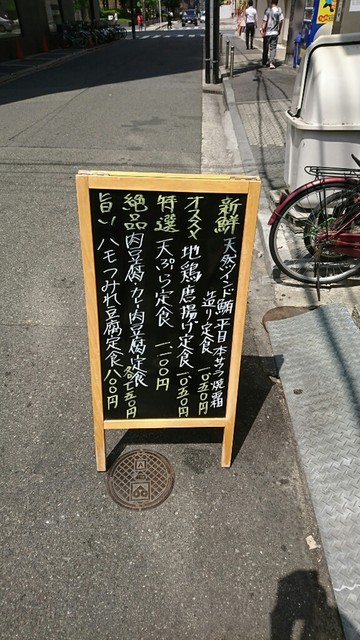 新鮮 天然ツインド鮪 平目 本サワラ焼霜
造り定食 一〇五〇円
オススメ 地鶏唐揚げ定食 一〇五〇円
特選 天ぷら定食 一一〇〇円
絶品 肉豆腐・カレー肉豆腐定食 各七五〇円
旨い ハモつみれ豆腐定食 八〇〇円